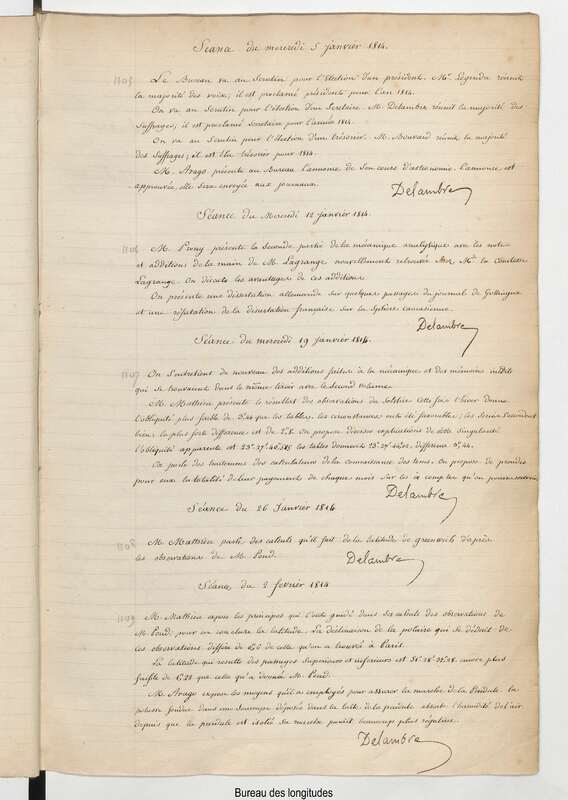 Séance du mercredi 5 janvier 1814.
1105 Le Bureau va au Scrutin pour l'élection d'un président. Mr. Legendre réunit
la majorité des voix; il est proclamé président pour l'an 1814.
On va au Scrutin pour l'élection d'un Secrétaire. M. Delambre réunit la majorité des
Suffrages; il est proclamé Secrétaire pour l'année 1814.
On va au Scrutin pour l'élection d'un trésorier. M. Bouvard réunit la majorité
des Suffrages; il est élu trésorier pour 1814.
M. Arago présente au Bureau l'annonce de son cours d'astronomie. L'annonce est
approuvée, elle sera envoyée aux journaux.
Delambre
Séance du Mercredi 12 janvier 1814.
1106 M. Prony présente la seconde partie de la mécanique analytique avec les notes
et additions de la main de M. Lagrange nouvellement retrouvé chez Me. la Comtesse
Lagrange. On discute les avantages de ces additions.
On présente une dissertation allemande sur quelques passages du journal de Gottingue
et une réfutation de la dissertation française sur la Sphère caucasienne.
Delambre
Séance du mercredi 19 janvier 1814.
1107 On s'entretient de nouveau des additions faites à la mécanique et des mémoires inédits
qui se trouvaient dans le même tiroir avec le second volume.
M. Mathieu présente le résultat des observations du Solstice. Cette fois l'hiver donne
l'obliquité plus faible de que les tables. les circonstances ont été favorables; les Séries s'accordent
bien; la plus forte différence est de 2".8. On propose diverses explications de cette singularité
l'obliquité apparente est 23°.27'. les tables donnent 23°.27'. différence
On parle des traitemens des calculateurs de la connaissance des tems. On propose de prendre
pour eux la totalité de leur payement de chaque mois sur les à comptes qu'on pourra recevoir.
Delambre
Séance du 26 Janvier 1814.
1108 M. Mathieu parle des calculs qu'il fait de la latitude de greenwich d'après
les observations de M. Pond.
Delambre
Séance du 2 février 1814
1109 M. Mathieu expose les principes qui l'ont guidé dans ses calculs des observations de
M. Pond, pour en conclure la latitude. La déclinaison de la polaire qui se déduit de
ces observations diffère de de celle qu'on a trouvée à Paris.
La latitude qui résulte des passages supérieurs et inférieurs est encore plus
faible de que celle qu'a donnée M. Pond.
M. Arago expose les moyens qu'il a employés pour assurer la marche de la Pendule. la
potasse fondue dans une soucoupe déposée dans la boîte de la pendule absorbe l'humidité de l'air.
depuis que la pendule est isolée sa marche paraît beaucoup plus régulière.
Delambre
Bureau des longitudes